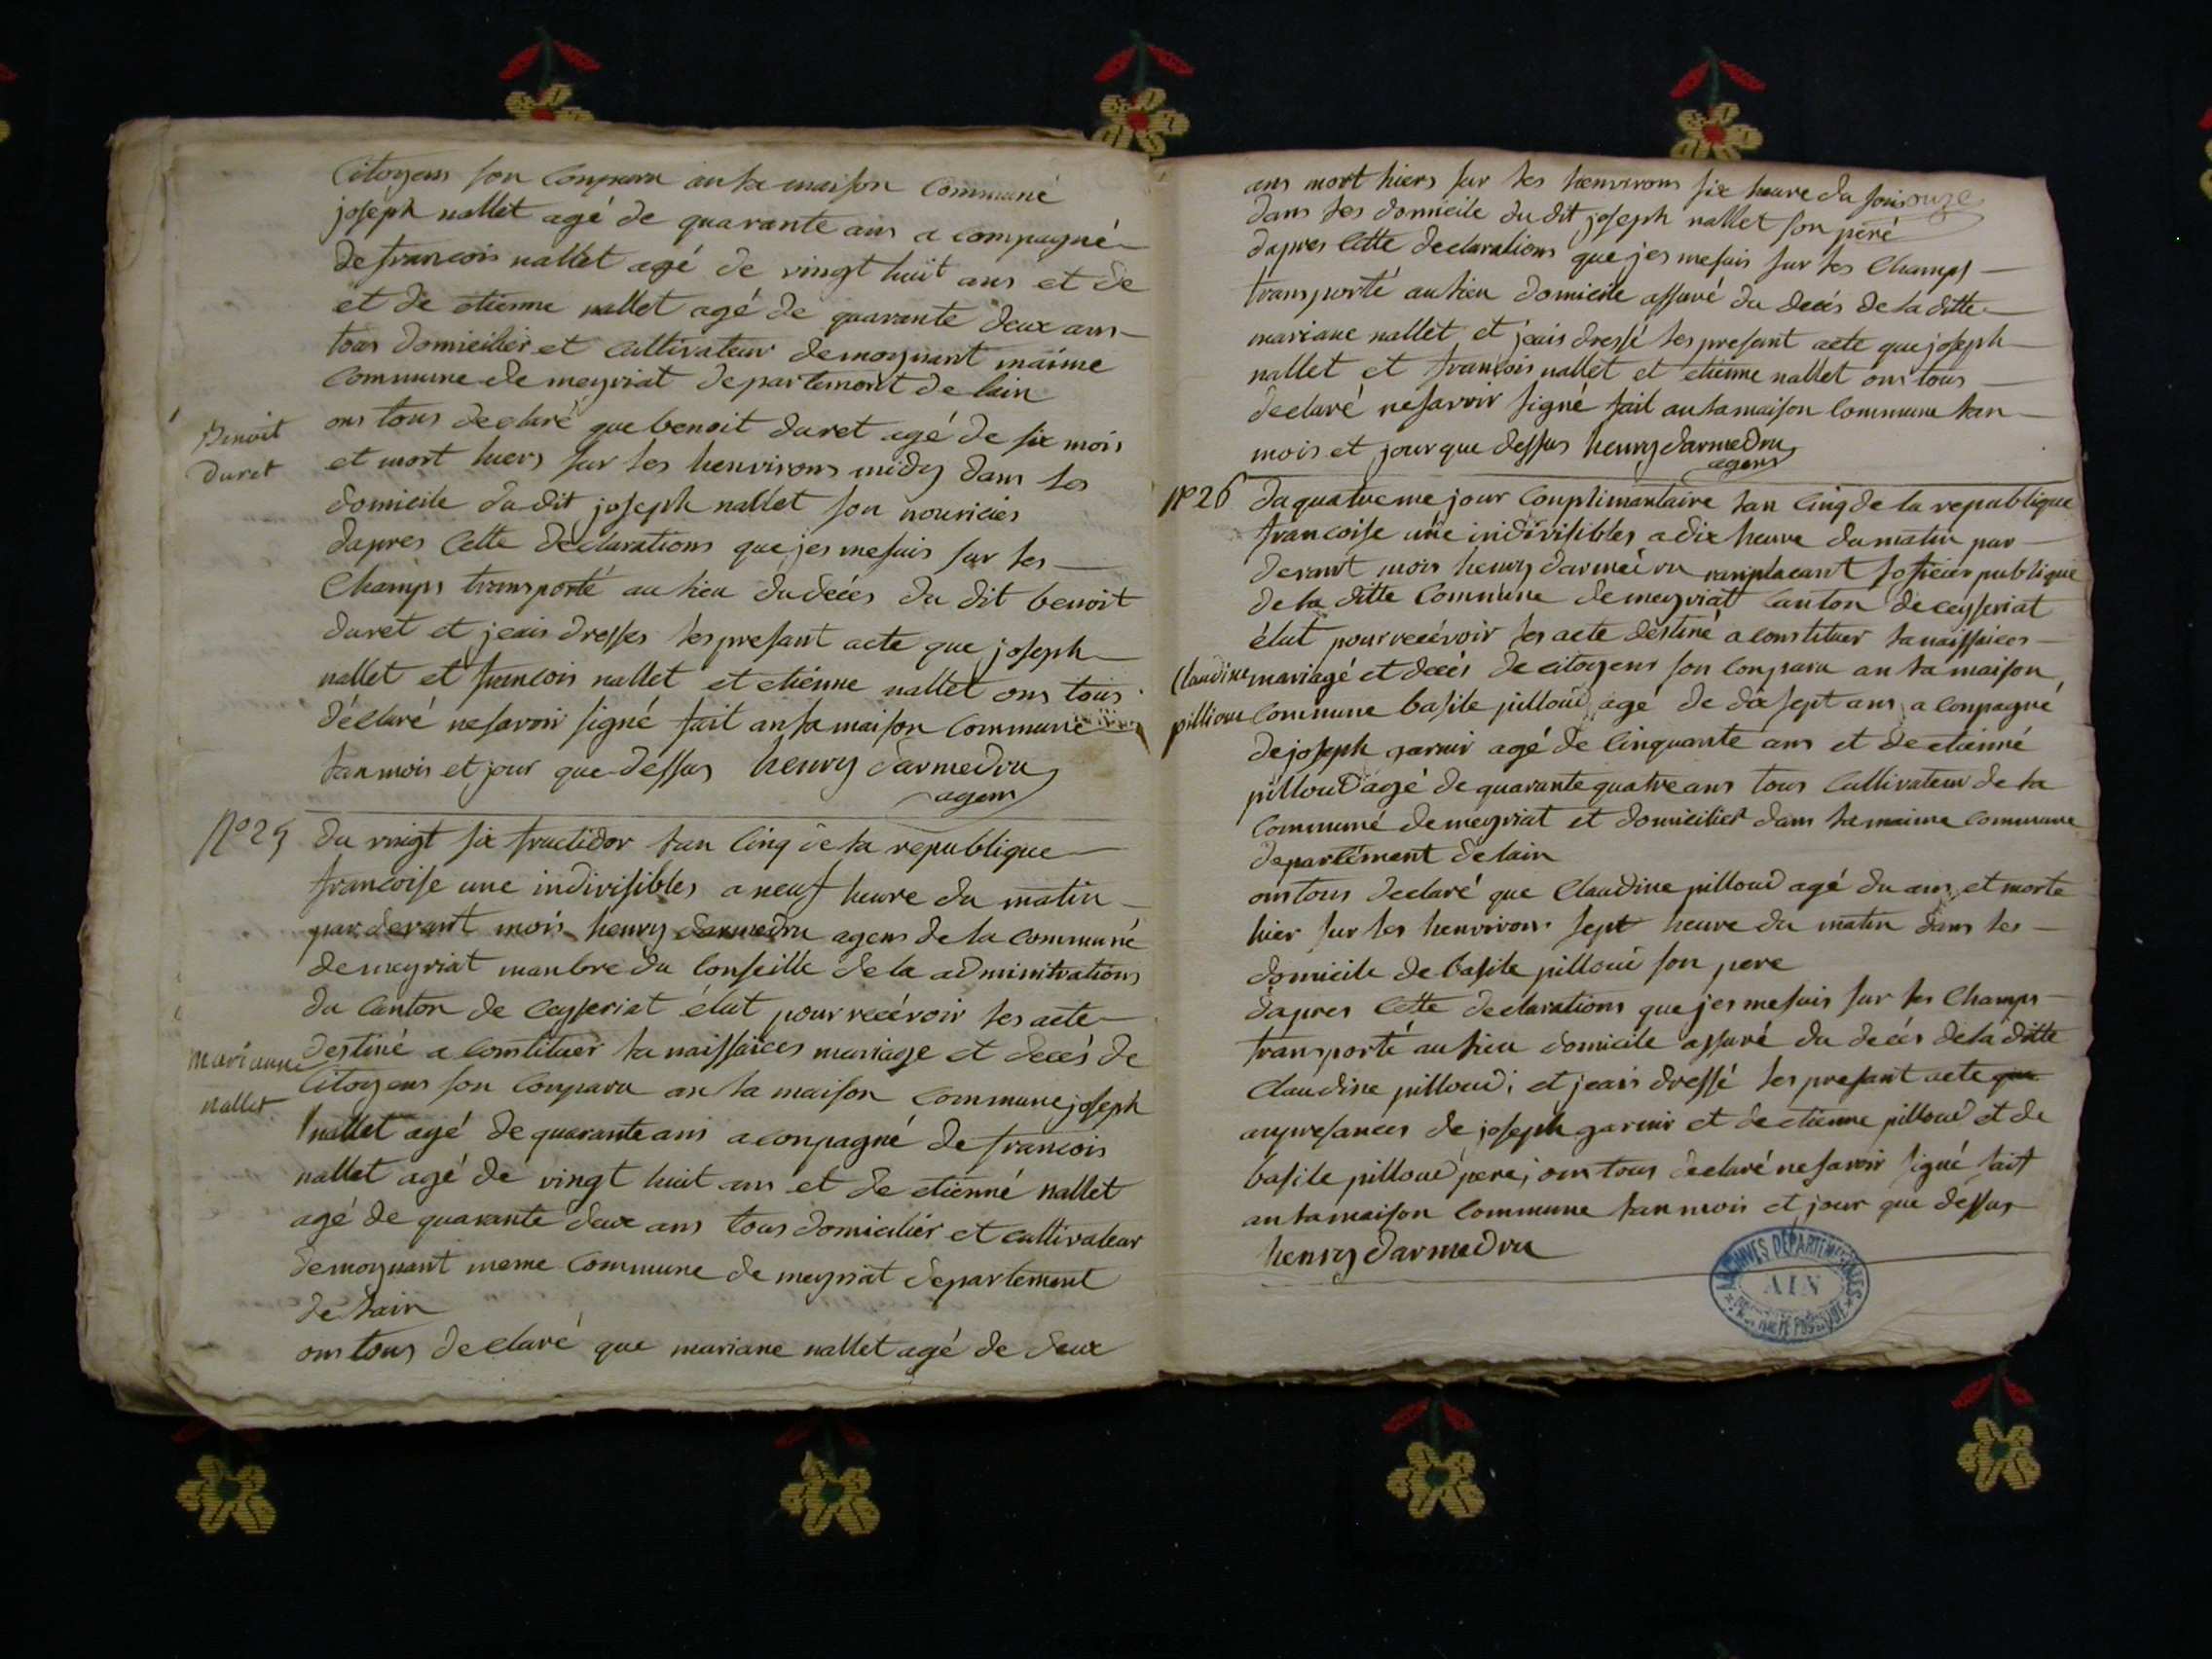 Citoyens son Conparu an la maison Communé
joseph nallet agé de quarante ans a compagné
de francois nallet agé de vingt huit ans et de
et de etienne nallet agé de quarante deux ans
tous domicilier et Cultivateur demoynant maime
Commune de meyriat departement de lain
ons tous declaré que benoit duret agé de six mois
et mort hiers sur les henvirons midy dans les
Benoit
duret
domicile du dit joseph nallet son nouricier
dapres Cette declarations que jes me suis sur les
Champs transporté au lieu du decés du dit benoit
duret et jeais dresses les presant acte que joseph
nallet et francois nallet et etienne nallet ons tous
déclaré ne savoir signé fait an la maison Commune
lan mois et jour que dessus henry darmedru
agens
N° 25 du vingt six fructidor lan Cinq de la republique
francoise une indivisibles a neuf heure du matin
par devant mois henry darmedru agens de la Communé
de meyriat manbre du Conseille de la adminitrations
du Canton de Ceyseriat élut pour recévoir les acte
destiné a Constituer la naissaices mariage et decés de
Citoyens son Conparu an la maison Commune joseph
marianne
nallet
nallet agé de quarante ans a conpagné de francois
nallet agé de vingt huit ans et de etienné nallet
agé de quarante deux ans tous domicilier et cultivateur
demoynant meme Commune de meyriat departement
de lain
ons tous declaré que mariane nallet agé de deux
onze
ans mort hiers sur les henvirons six heure du soir
dans les domicile du dit joseph nallet son peré
dapres Cette declarations que jes me suis sur les Champs
transporté au lieu domicile assuré du decés de la ditte
mariane nallet et jeais dressé les presant acte que joseph
nallet et francois nallet et etienne nallet ons tous
declaré ne savoir signé fait an la maison Commune lan
mois et jour que dessus henry darmedru
agens
N° 26 du quatrieme jour Conplimantaire lan Cinq de la republique
francoise une indivisibles a dix heure du matin par
devant mois henry darmedru ranplacant lofficier publique
de la ditte Commune de meyriat Canton de ceyseriat
élut pour recévoir les acte destiné a constituer la naissaices
mariagé et decés de citoyens son Conparu an la maison
Claudine
pilliouc
Commune basile pilloud agé de dix sept ans a conpagné
de joseph garnir agé de Cinquante ans et de etienné
pilloud agé de quarante quatre ans tous Cultivateur de la
Communé de meyriat et domicilier dans la maime Commune
departément de lain
ons tous declaré que Claudine pilloud agé du ans et morte
hier sur les henvirons sept heure du matin dans les
domicile de basile pilloud son pere
dapres Cette declarations que jes me suis sur les Champs
transporté au lieu domicile assuré du decés de la ditte
Claudine pilloud, et jeais dressé les presant acte que
anpresances de joseph garnir et de etienne pilloud et de
basile pilloud pere, ons tous declaré ne savoir signé fait
an la maison Commune lan mois et jour que dessus
henry darmedru
ARCHIVES DEPARTEMENTALES
AIN